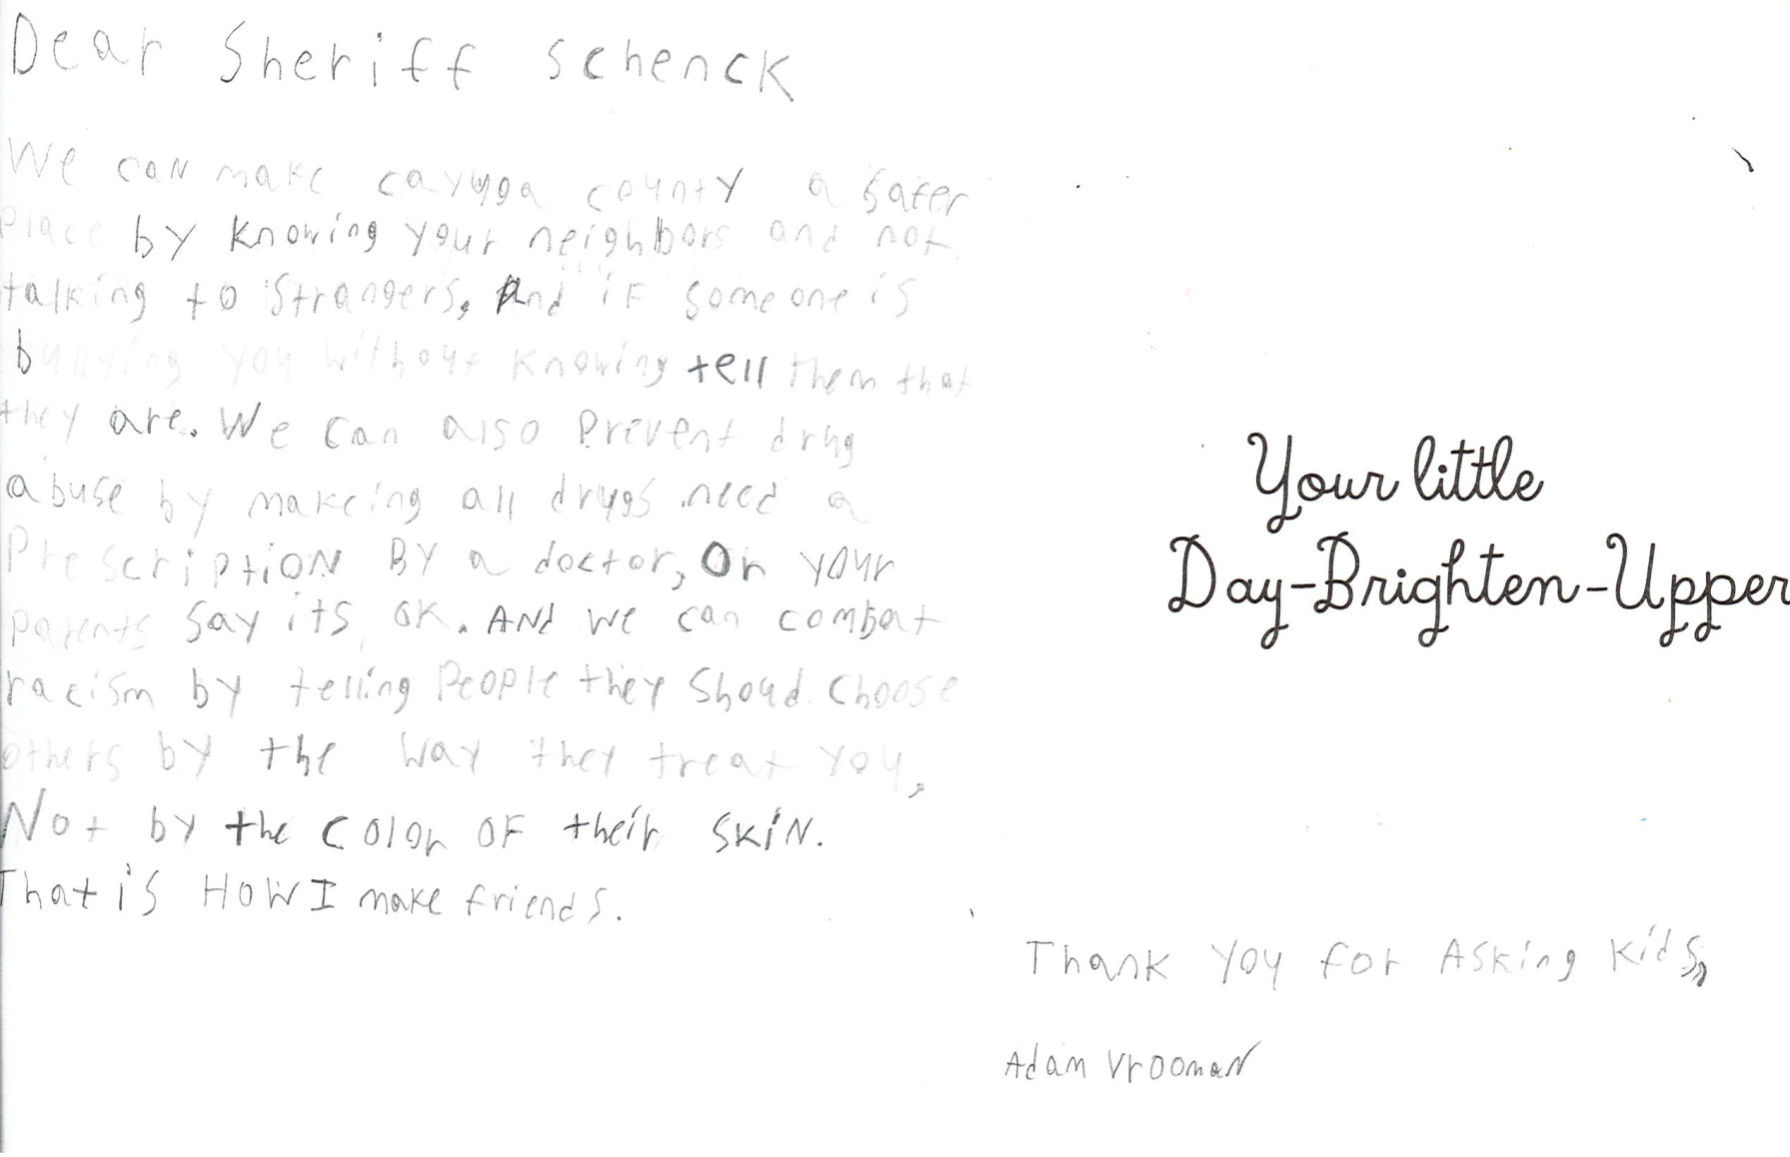 Dear Sheriff Schenck
We can make cayuga county a safer
place by knowing your neighbors and not
talking to strangers, And if someone is
bullying you without knowing tell them that
they are. We can also prevent drug
abuse by makeing all drugs need a
Prescription By a doctor, Or your
parents say its ok. And we can combat
racism by telling People they shoud choose
others by the way they treat you,
Not by the color OF their skiN.
That is How I make friends.
Your little
Day-Brighten-Upper
Thank You for Asking kids,
Adam Vrooman